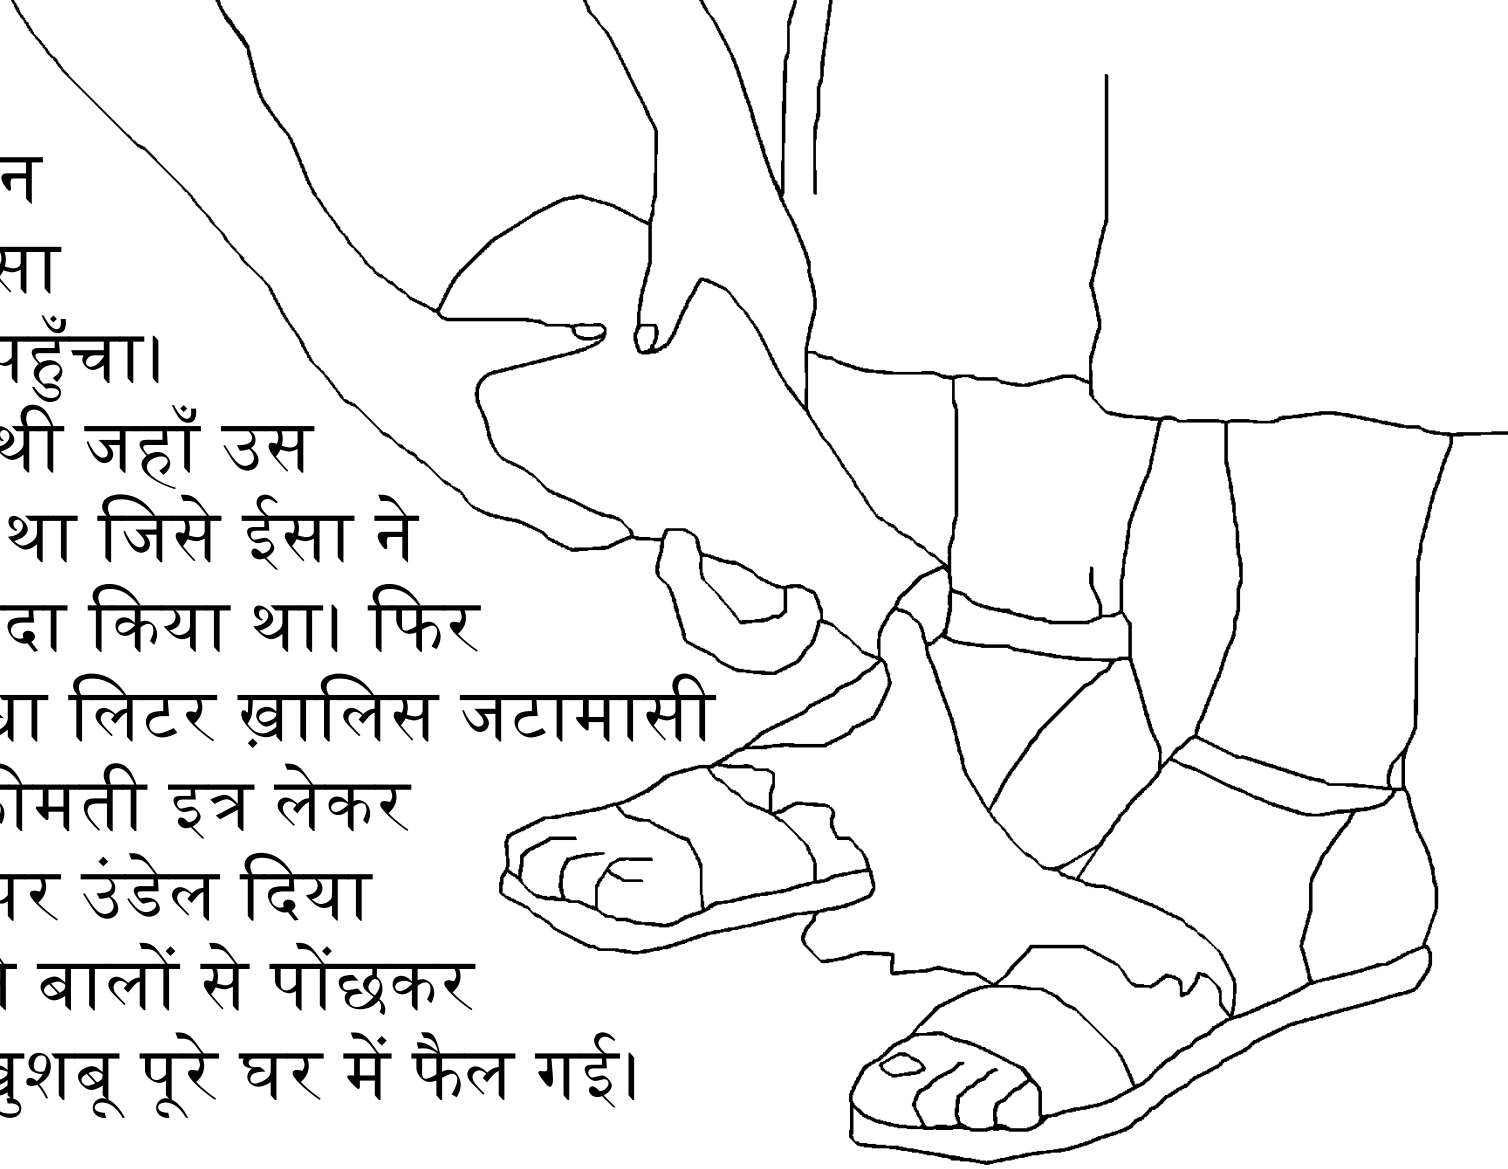 न
सा
पहुँचा।
थी जहाँ उस
था जिसे ईसा ने
दा किया था। फिर
लिटर ख़ालिस जटामासी
इत्र लेकर
पर उंडेल दिया
बालों से पोंछकर
पूरे घर में फैल गई।